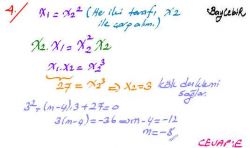 4.) x₁ = x₂² (Her iki tarafı x₂ ile çarpalım.)
Baylebik
x₂ . x₁ = x₂² x₂
x₁ . x₂ = x₂³
27 = x₂³ ⇒ x₂ = 3 kök denklemi sağlar.
3² + (n-4).3 + 27 = 0
3(n-4) = -36 ⇒ n-4 = -12
n = -8
CEVAP: E